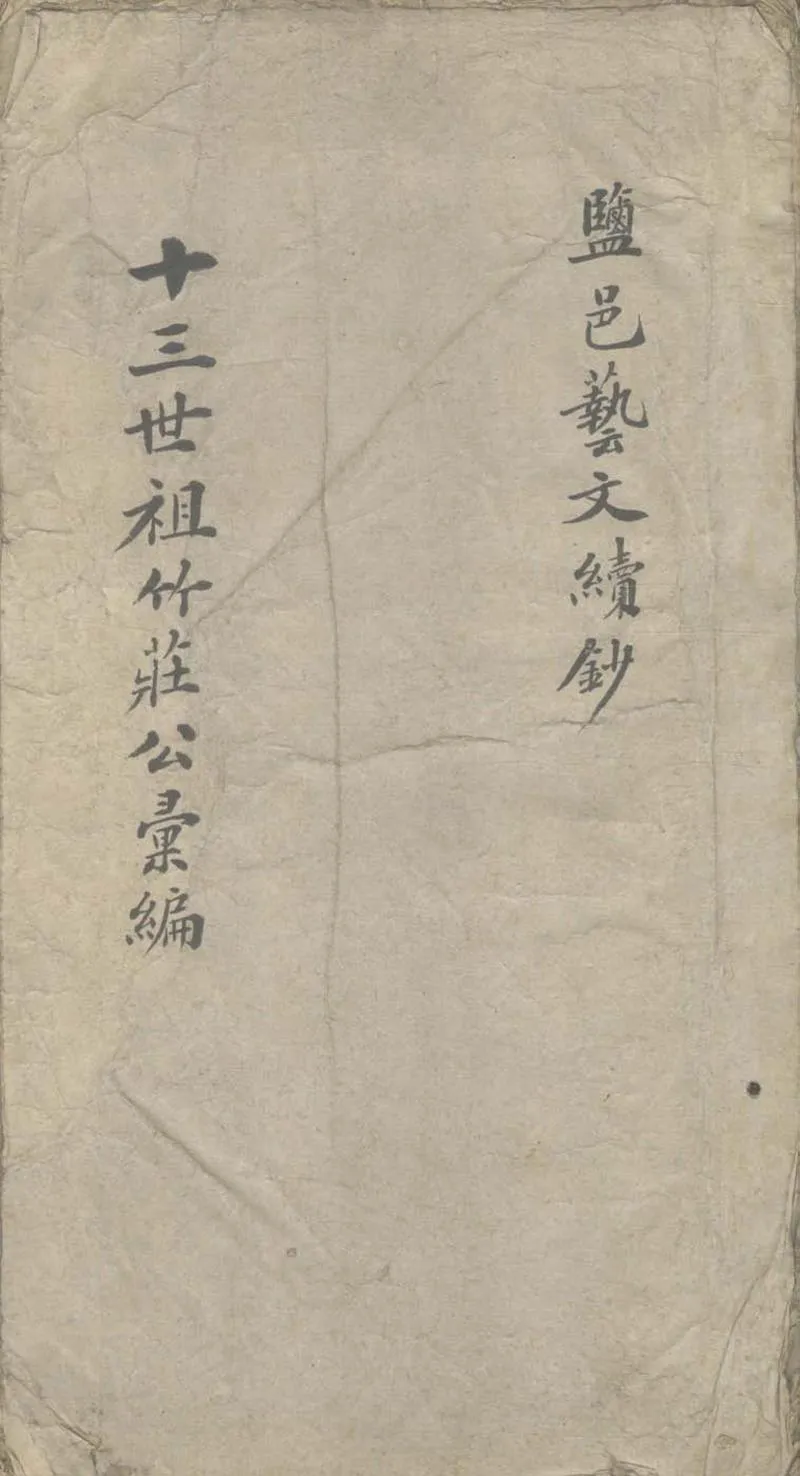 鹽邑藝文續鈔
十三世祖竹莊公彙編